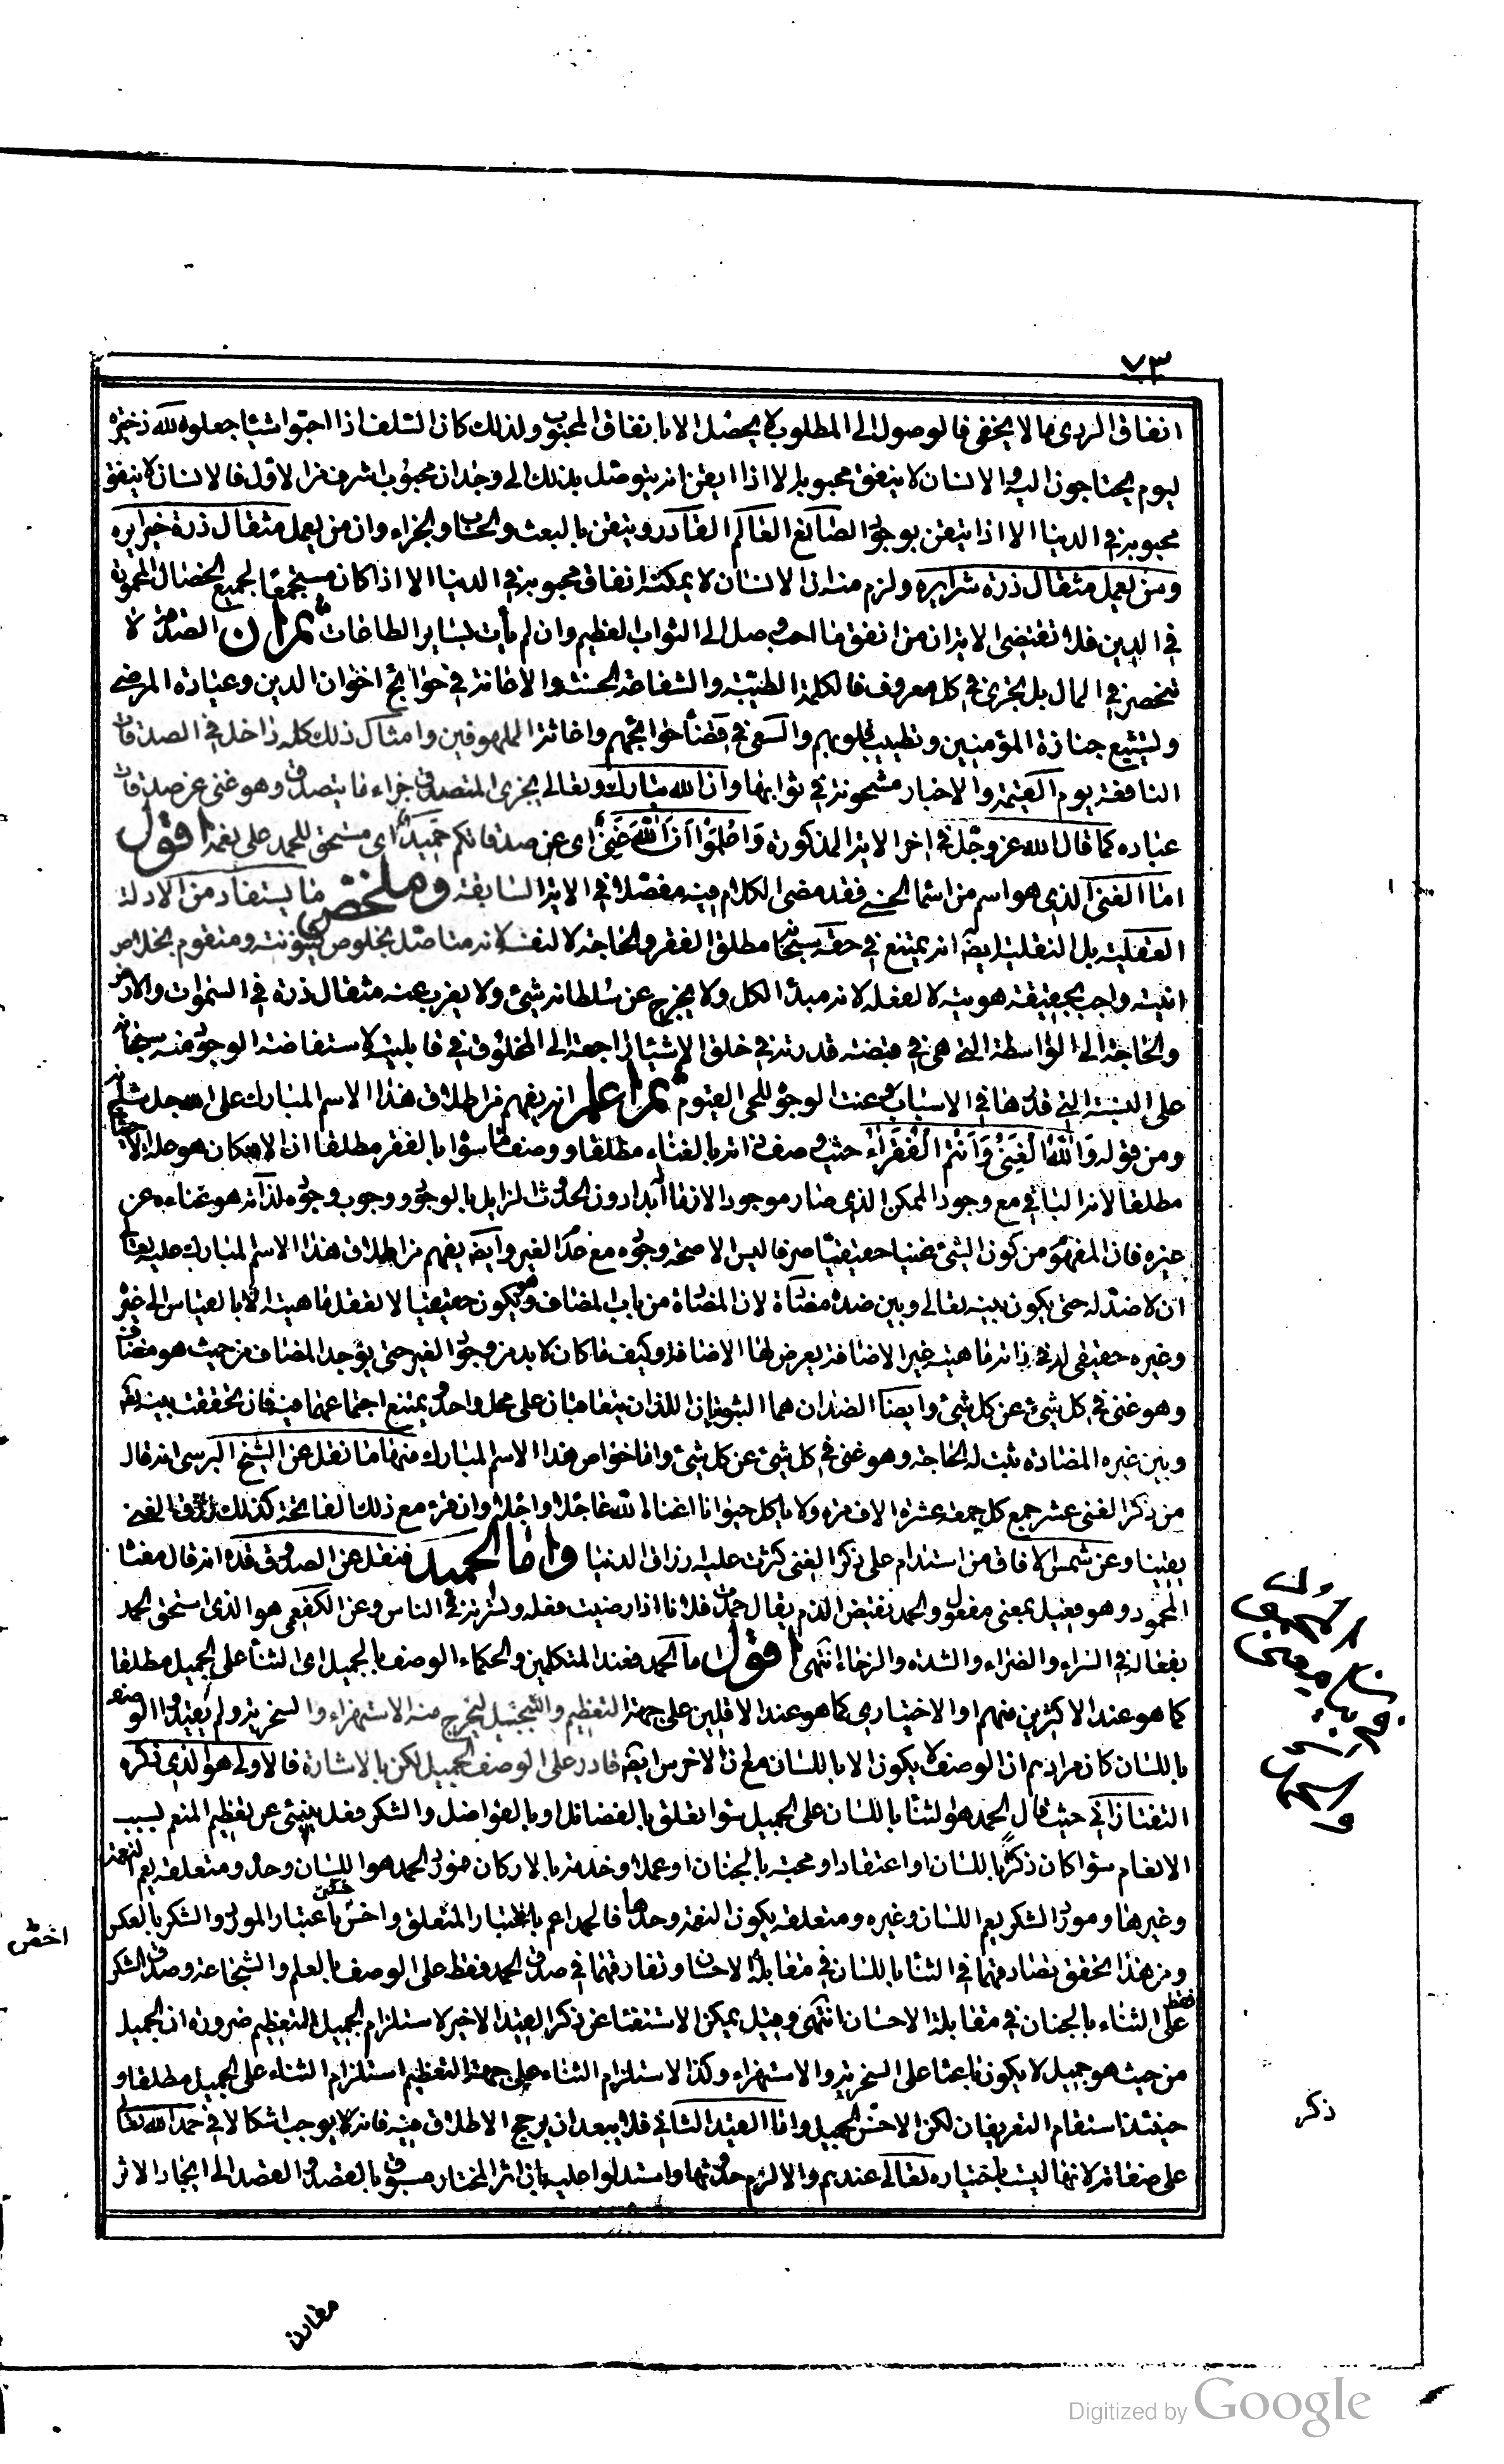 ٧٣
انفاق الردى مما لا يخفى فالوصول الى المطلوب لا يحصل الا بانفاق المحبوب ولذلك كان السلف اذا احبوا شيئا جعلوه لله ذخيرة
ليوم يحتاجون اليه والانسان لا ينفق محبوبه الا اذا ايقن انه يتوصل بذلك الى وجدان محبوب اشرف من الاول فالانسان لا ينفق
محبوبه في الدنيا الا اذا تيقن بوجود الصانع العالم القادر وتيقن بالبعث والحساب والجزاء وان من يعمل مثقال ذرة خيرا يره
ومن يعمل مثقال ذرة شرا يره ولزم منه ان الانسان لا يمكنه انفاق محبوبه في الدنيا الا اذا كان مستجمعا لجميع الخصال المحمودة
في الدين فلا تقتضى الاية ان من انفق مما احب وصل الى الثواب العظيم وان لم يأت بساير الطاعات ثم ان الصدقة لا
تنحصر في المال بل تجرى في كل معروف فالكلمة الطيبة والشفاعة الحسنة والاعانة في حوائج اخوان الدين وعيادة المرضى
وتشييع جنازة المؤمنين وتطييب قلوبهم والسعى في قضاء حوائجهم واغاثة الملهوفين وامثال ذلك كله داخل في الصدقات
النافعة يوم القيمة والاخبار مشحونة في ثوابها وان الله تبارك وتعالى يجزى المتصدق جزاء ما يتصدق وهو غنى عن صدقات
عباده كما قال الله عز وجل في اخر الاية المذكورة وَاعْلَمُوا اَنَّ اللّٰهَ غَنِىٌّ اى عن صدقاتكم حَمِيدٌ اى مستحق للحمد على نعمه اقول
اما الغنى الذى هو اسم من اسماء الحسنى فقد مضى الكلام فيه مفصلا في الاية السابقة وملخص ما يستفاد من الادلة
العقلية بل النقلية ايضا انه يمتنع في حقه سبحانه مطلق الفقر والحاجة لا لنفسه لانه متاصل بخلوص كينونته ومتقوم بخلاص
انيته واجب بحقيقة هويته لا لفعله لانه مبدأ الكل ولا يخرج عن سلطانه شئ ولا يعزب عنه مثقال ذرة في السموات والارض
والحاجة الى الواسطة التى هى في قبضة قدرته في خلق الاشياء راجعة الى المخلوق في قابليته لاستفاضة الوجود منه سبحانه
على السنة التى قدرها في الاسباب وعنت الوجوه للحى القيوم ثم اعلم انه يفهم من اطلاق هذا الاسم المبارك على الله جل شأنه
ومن قوله وَاللّٰهُ الْغَنِىُّ وَاَنْتُمُ الْفُقَرَاءُ حيث وصف ذاته بالغناء مطلقا ووصف ما سواه بالفقر مطلقا ان الامكان هو علة الاحتياج
مطلقا لانه الباقى مع وجود الممكن الذى صار موجودا لازما ابدا دون الحدوث الزايل بالوجود ووجوب وجوده لذاته هو غناءه عن
غيره فان المفهوم من كون الشئ غنيا حقيقيا صرفا ليس الا صحة وجوده مع عدم الغير وايضا يفهم من اطلاق هذا الاسم المبارك عليه تعالى
ان لا ضد له حتى يكون بينه تعالى وبين ضده مضادة لان المضادة من باب المضاف وهو يكون حقيقيا لا تعقل ماهيته الا بالقياس الى غيره
وغيره حقيقى له في ذاته ماهية غير الاضافة يعرض لها الاضافة وكيف ما كان لا بد من وجود الغير حتى يوجد المضاف من حيث هو مضاف
وهو غنى في كل شئ عن كل شئ وايضا الضدان هما الثبوتيان اللذان يتعاقبان على محل واحد يمتنع اجتماعهما فيه فان تحققت بينه تعالى
وبين غيره المضادة يثبت له الحاجة وهو غنى في كل شئ عن كل شئ واما خواص هذا الاسم المبارك فمنها ما نقل عن الشيخ البرسى انه قال
من ذكر الغنى عشر جمع كل جمعة عشرة الاف مرة ولا ياكل حيوانا اغناه الله عاجلا واجلا وان قرء مع ذلك الفاتحة كذلك رزق الغنى
يقينا وعن شمس الافاق من استدام على ذكر الغنى كثرت عليه ارزاق الدنيا واما الحميد فنقل عن الصدوق قده انه قال معناه
المحمود وهو فعيل بمعنى مفعول والحمد نقيض الذم يقال حمدت فلانا اذا رضيت فعله ونشرته في الناس وعن الكفعمى هو الذى استحق الحمد
بفعاله في السراء والضراء والشدة والرخاء انتهى اقول ما الحمد فعند المتكلمين والحكماء الوصف بالجميل اى الثناء على الجميل مطلقا
كما هو عند الاكثرين منهم او الاختيارى كما هو عند الاقلين على جهة التعظيم والتبجيل ليخرج منه الاستهزاء والسخرية ولم يقيدوا الوصف
باللسان كان مرادهم ان الوصف لا يكون الا باللسان مع ان الاخرس ايضا قادر على الوصف الجميل لكن بالاشارة فالاولى هو الذى ذكره
التفتازانى حيث قال الحمد هو الثناء باللسان على الجميل سواء تعلق بالفضائل او بالفواضل والشكر فعل ينبئ عن تعظيم المنعم بسبب
الانعام سواء كان ذكرا باللسان او اعتقادا ومحبة بالجنان او عملا وخدمة بالاركان فمورد الحمد هو اللسان وحده ومتعلقه يعم النعمة
وغيرها ومورد الشكر يعم اللسان وغيره ومتعلقه يكون النعمة وحدها فالحمد اعم باعتبار المتعلق واخص باعتبار المورد والشكر بالعكس
ومن هذا تحقق تصادقهما في الثناء باللسان في مقابلة الاحسان وتفارقهما في صدق الحمد فقط على الوصف بالعلم والشجاعة وصدق الشكر
فقط على الثناء بالجنان في مقابلة الاحسان انتهى وقيل يمكن الاستغناء عن ذكر القيد الاخير لاستلزام الجميل التعظيم ضرورة ان الجميل
من حيث هو جميل لا يكون باعثا على السخرية والاستهزاء وكذا لاستلزام الثناء على جهة التعظيم استلزام الثناء على الجميل مطلقا و
حينئذ استقام التعريفان لكن الاحسن الجميل واما القيد الثانى فلا يبعد ان يرجح الاطلاق فيه فانه لا يوجب اشكالا في حمد الله تعالى
على صفاته لانها ليست باختياره تعالى عندهم والا لزم حدوثها واستدلوا عليه بان اثر المختار مسبوق بالقصد والقصد الى ايجاد الاثر
اخص
ذكر
مقارن